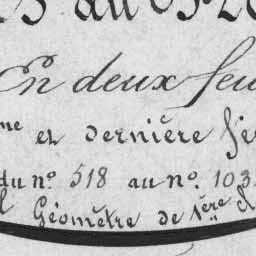 En deux feu
me et dernière fe
du n° 518 au n° 103
Géomètre de 1ère cl